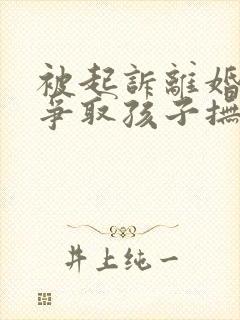 被起訴離婚
爭取孩子撫
井上纯一